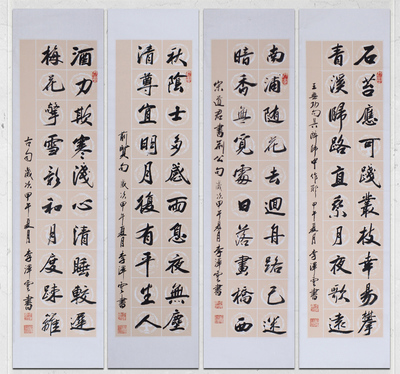 石苔應可踐叢枝幸易攀
青溪歸路直乘月夜歌還
甲午夏月李澤雲書
南浦隨花去迴舟路已迷
暗香無覓處日落畫橋西
宋道君書荊公句歲次甲午夏月李澤雲書
秋陰士多感雨息夜無塵
清尊宜明月復有平生人
前賢句歲次甲午夏月李澤雲書
酒力欺寒淺心清睡較遲
梅花擎雪影和月度踈籬
古句歲次甲午夏月李澤雲書